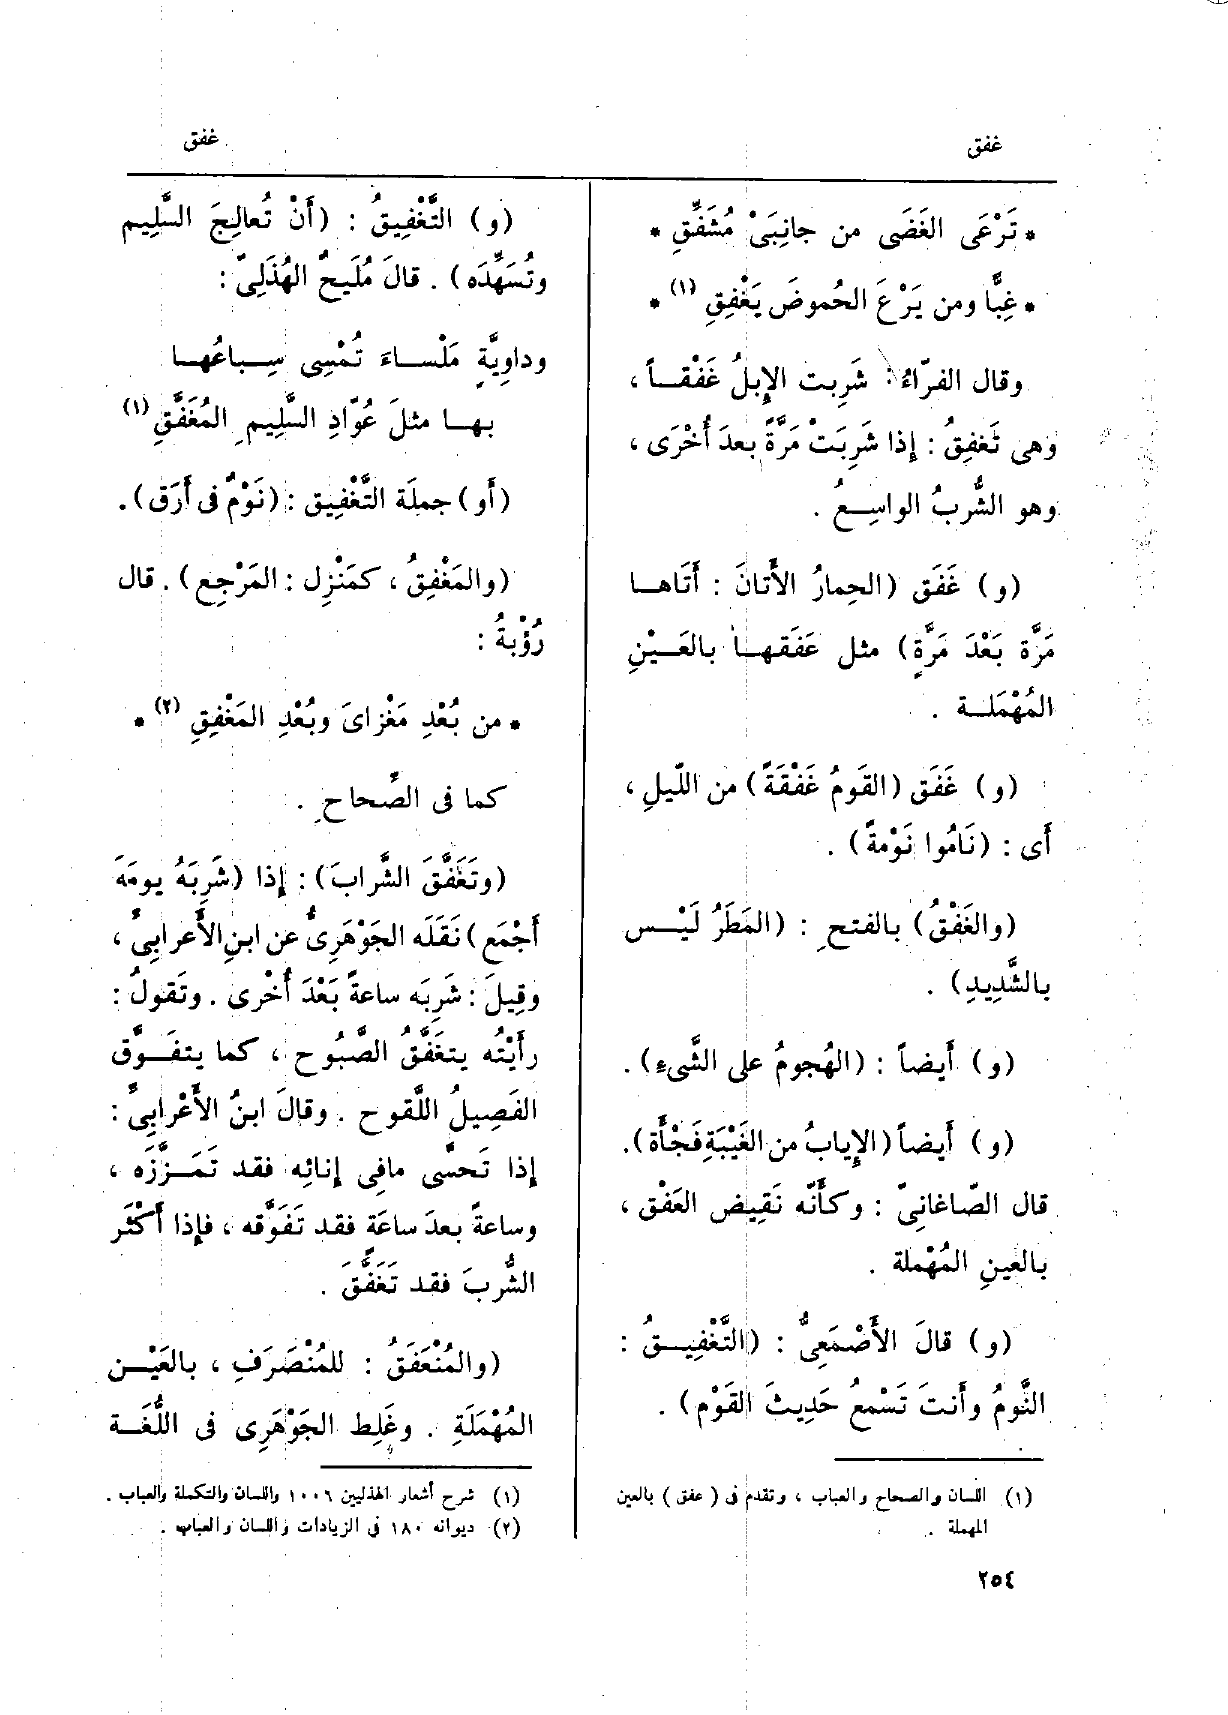 غفق
غفق
* تَرْعَى الغَضَى من جانِبَىْ مُشَفِّقِ *
* غِبًّا ومن يَرْعَ الحُموضَ يَغْفِقِ (١) *
وقال الفرّاءُ : شَرِبت الإِبلُ غَفْقــاً ،
وهى تَغفِقُ : إِذا شَرِبَتْ مَرَّةً بعدَ أُخْرَى ،
وهو الشُّربُ الواسِــعُ .
(و) غَفَق (الحِمارُ الأَتانَ : أَتَاهــا
مَرَّة بَعْدَ مَرَّةٍ) مثل عَفَقهــا بالعَــيْنِ
المُهْمَلــة .
(و) غَفَق (القَومُ غَفْقَةً) من اللّيلِ ،
أَى : (نَامُوا نَوْمةً) .
(والغَفْقُ) بالفتحِ : (المَطَرُ لَيْــس
بالشَّدِيدِ) .
(و) أَيضاً : (الهُجومُ على الشَّىءِ) .
(و) أَيضاً (الإِيابُ من الغَيْبَةِ فَجْأَة).
قال الصّاغانِىّ : وكأَنّه نَقِيض العَفْق ،
بالعَينِ المُهْملة .
(و) قالَ الأَصْمَعِىُّ : (التَّغْفِيــقُ :
النَّومُ وأَنتَ تَسْمعُ حَدِيثَ القَوْم) .
(١) اللسان والصحاح والعباب ، وتقدم فى (عفق) بالعين
المهملة .
(و) التَّغْفِيقُ : (أَنْ تُعالِجَ السَّلِيم
وتُسَهِّدَه) . قالَ مُلَيحٌ الهُذَلِىّ :
وداوِيَّةٍ مَلْســاءَ تُمْسِى سِــباعُهــا
بهــا مثلَ عُوّادِ السَّلِيمِ المُغَفَّقِ (١)
(أَو) جملَة التَّغْفِيق : (نَوْمٌ فى أَرَق) .
(والمَغْفِقُ ، كمَنْزِل : المَرْجِع) . قال
رُؤْبةُ :
* من بُعْدِ مَغْزاىَ وبُعْدِ المَغْفِقِ (٢) *
كما فى الصِّحاحِ .
(وتَغَفَّقَ الشَّرابَ) : إِذا (شَرِبَهُ يومَهَ
أَجْمَع) نَقَلَه الجَوْهَرِىُّ عن ابنِ الأَعرابِىِّ ،
وقِيلَ : شَرِبَه ساعةً بَعْدَ أُخْرى . وتَقولُ :
رأَيْتُه يتغَفَّقُ الصَّبُوح ، كما يتفَــوَّق
الفَصِيلُ اللَّقوح . وقالَ ابنُ الأَعْرابِىِّ :
إِذا تَحسَّى مافِى إِنائِه فقد تَمَــزَّزَه ،
وساعةً بعدَ ساعَة فقد تَفَوَّقه ، فإِذا أَكْثَر
الشُّربَ فقد تَغَفَّقَ .
(والمُنْعَفَقُ : للمُنْصَرَفِ ، بالعَيْــن
المُهْمَلَةِ . وغَلِط الجَوْهَرِى فى اللُّغَــة
(١) شرح أشعار الهذليين ١٠٠٦ واللسان والتكملة والعباب .
(٢) ديوانه ١٨٠ فى الزيادات واللسان والعباب .
٢٥٤